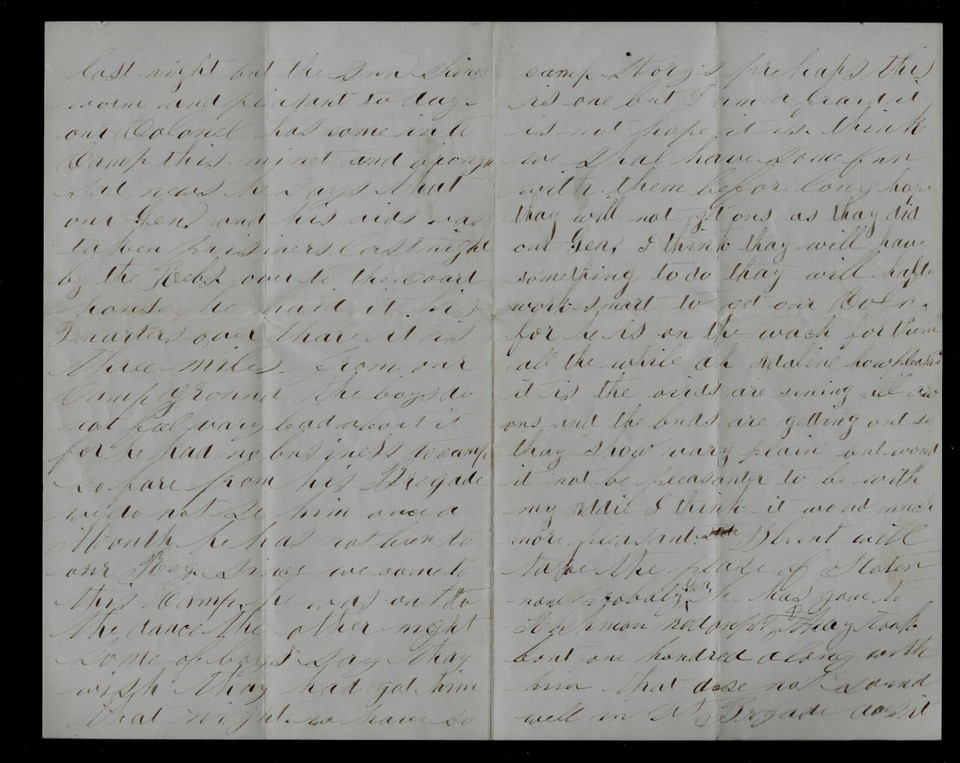 last night but the sun shines
worm and plesent to day
our Colonel has come in to
Camp this minet and
sad news he says that
our Gen and his aids was
taken prisiners last night
by the Rebs over to the Court
house he had it his
quarters over thare it is
three miles from our
Camp ground the boys do
not feel vary bad about it
for he had no business to camp
so fare from his Bregade
we do not se him once a
Month he has not been to
our Reg sinces we come to
this Camp. he was out to
the dance the other night
some of boys say thay
wish thay had got him
that night we have so
camp storys prehaps this
is one but I am afraid it
is not hope it is. think
we shal have some fun
with them befor long hope
thay will not git ons as thay did
our Gen, I think thay will have
something to do thay will hafto
work smart to get our Coln.
for he is on the wach for them
all the while ah Adaline how plesent
it is the birds are sining
and the buds are getting out so
thay show vary plain
it not be pleasanter to be with
my Addie I think it would much
more pleasant. Blunt will
take the plase of Stoten
now probaly Gen he has gone to
Richmon thay took
bout one hundred along with
him that dose not sound
well in Bregade dos it